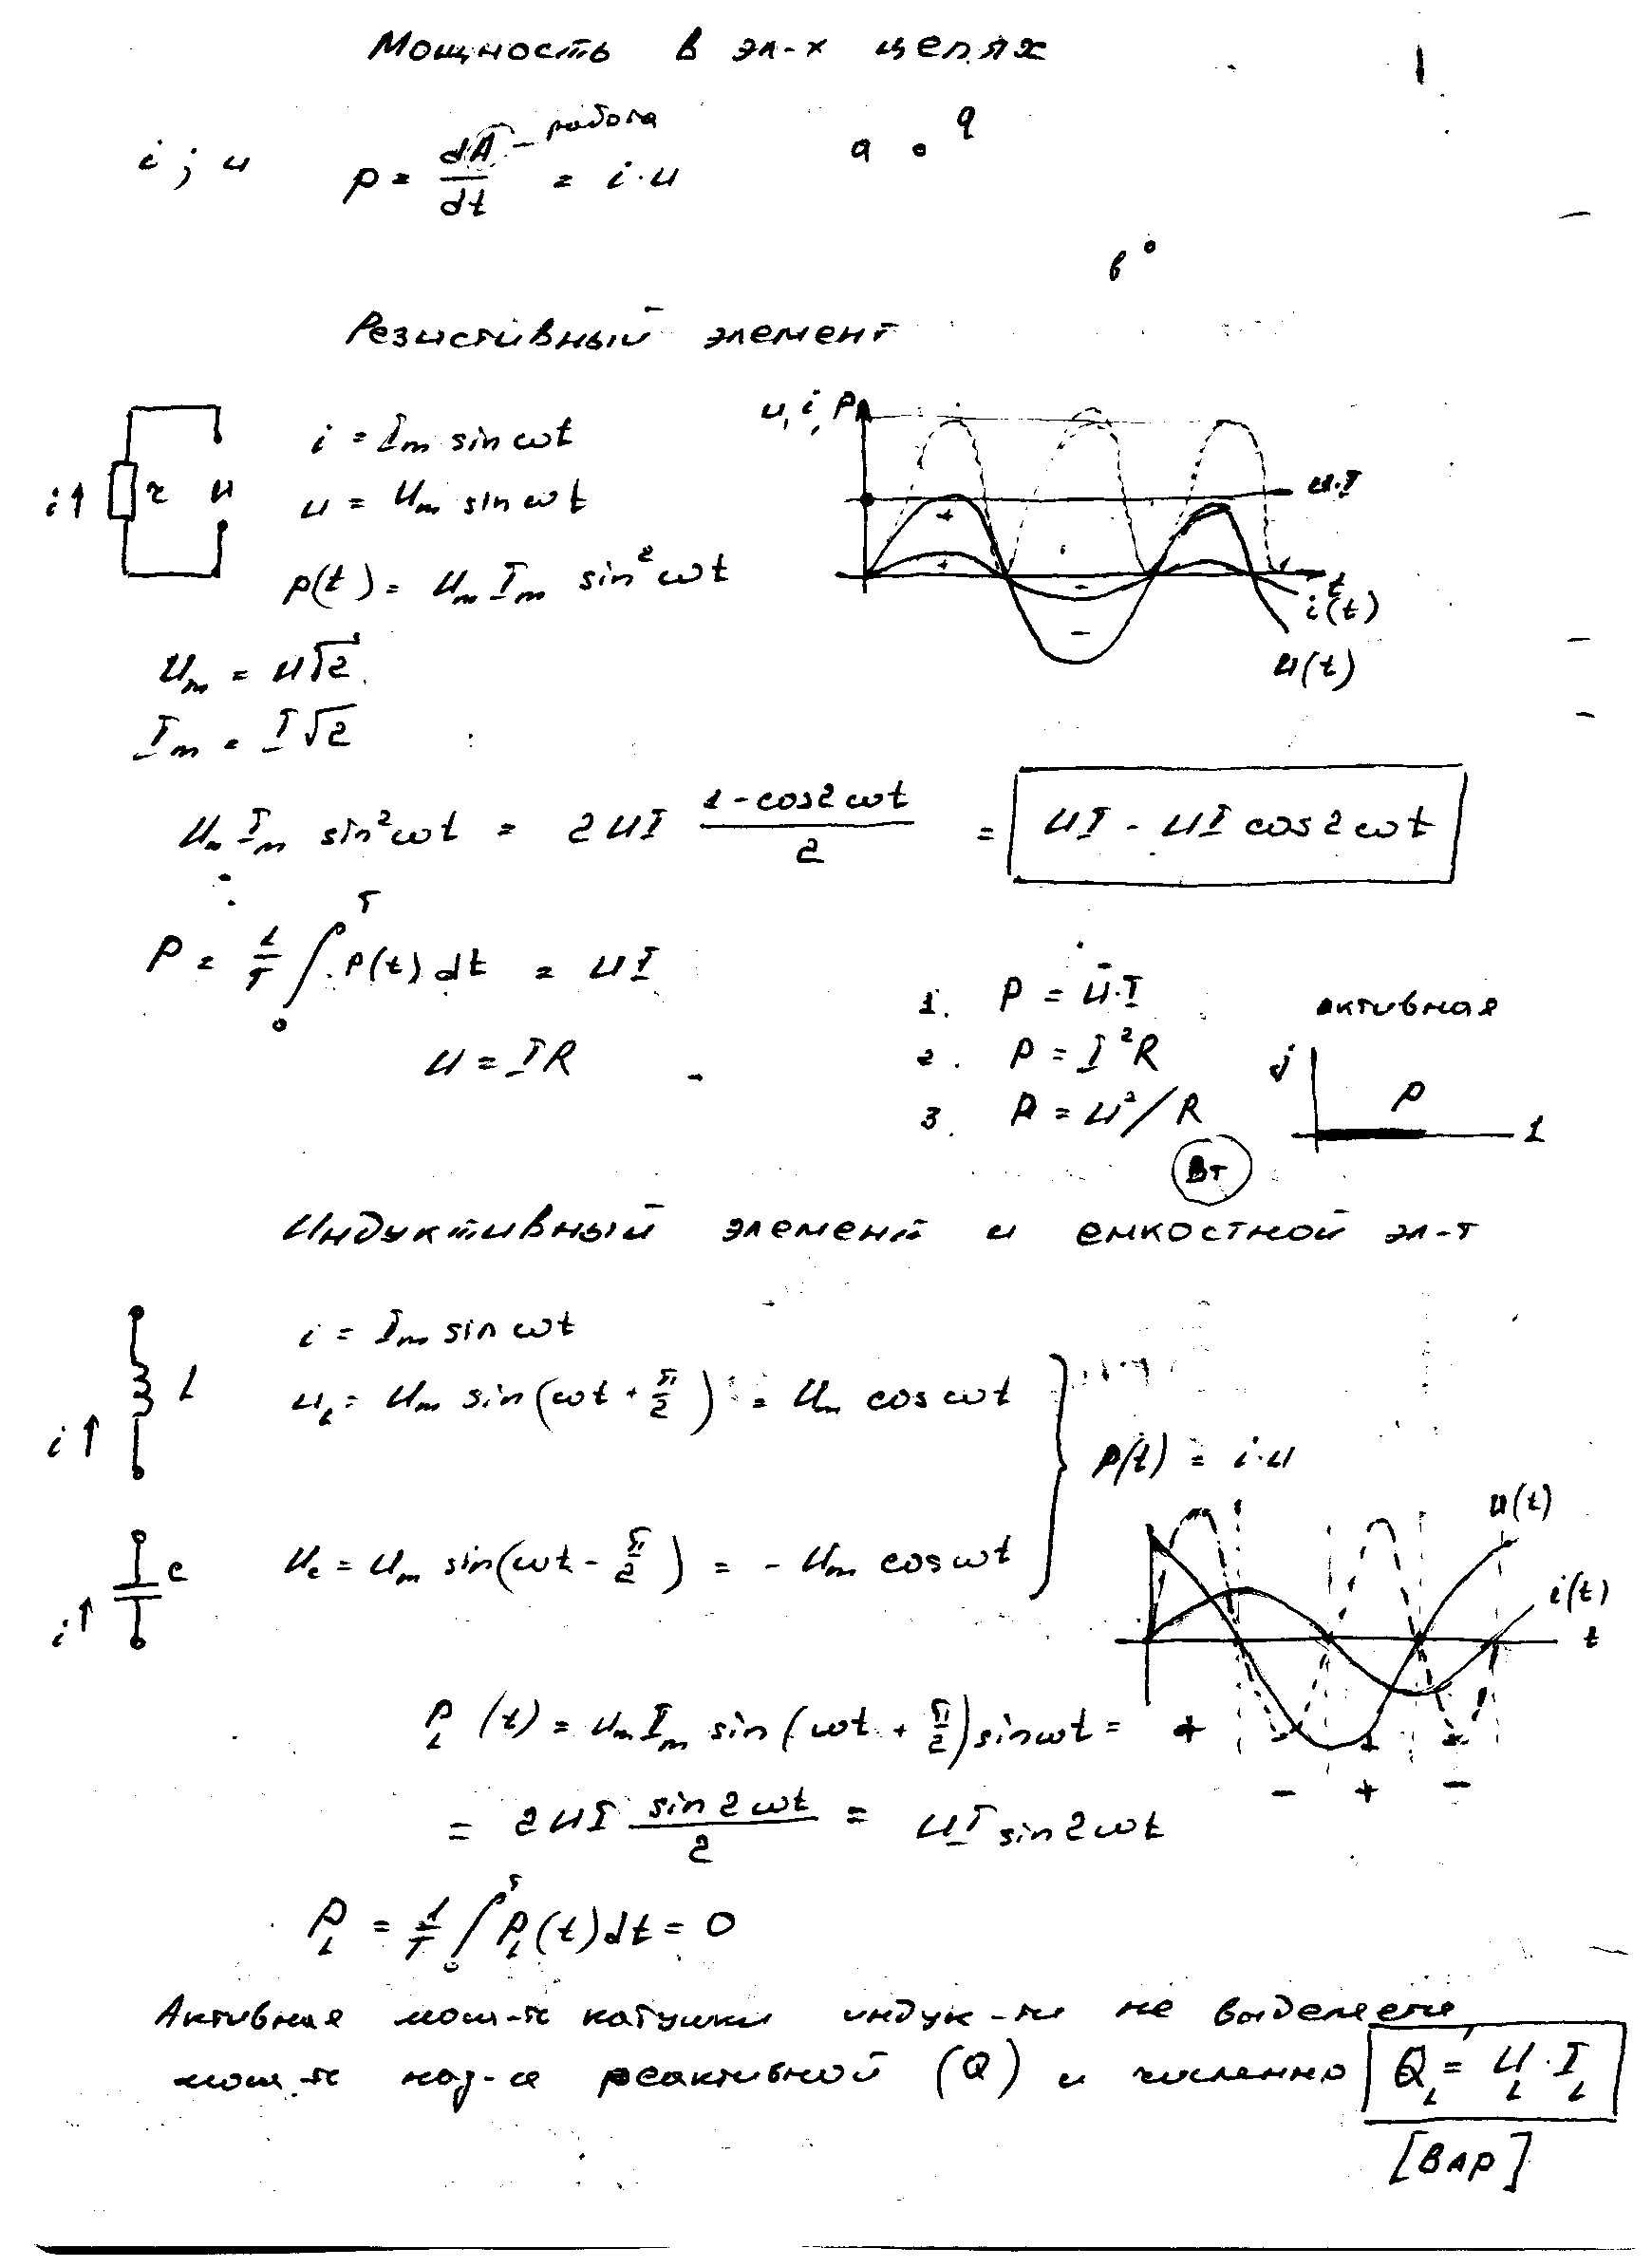 Мощность в эл-х цепях
1
i ; u p = dA/dt = i·u
работа
a q
в
Резистивный элемент
i = Im sin ωt
u = Um sin ωt
i↑ r u
p(t) = Um Im sin² ωt
u, i, p
U·I
t
i(t)
u(t)
+ + - -
Um = U√2
Im = I√2
Um Im sin² ωt = 2UI (1 - cos 2ωt)/2 = UI - UI cos 2ωt
P = 1/T ∫₀ᵀ p(t) dt = UI
U = IR
1. P = U·I
2. P = I²R
3. P = U²/R
Вт
активная
j P 1
Индуктивный элемент и емкостной эл-т
i = Im sin ωt
i↑ L
uL = Um sin(ωt + π/2) = Um cos ωt
p(t) = i·u
i↑ C
uc = Um sin(ωt - π/2) = - Um cos ωt
u(t)
i(t)
t
pL(t) = Um Im sin(ωt + π/2) sin ωt =
+ - + -
= 2UI sin 2ωt/2 = UI sin 2ωt
PL = 1/T ∫₀ᵀ pL(t) dt = 0
Активная мощ-ть катушки индук-ти не выделяется
мощ-ть наз-ся реактивной (Q) и численно QL = UL·IL
[ВАР]